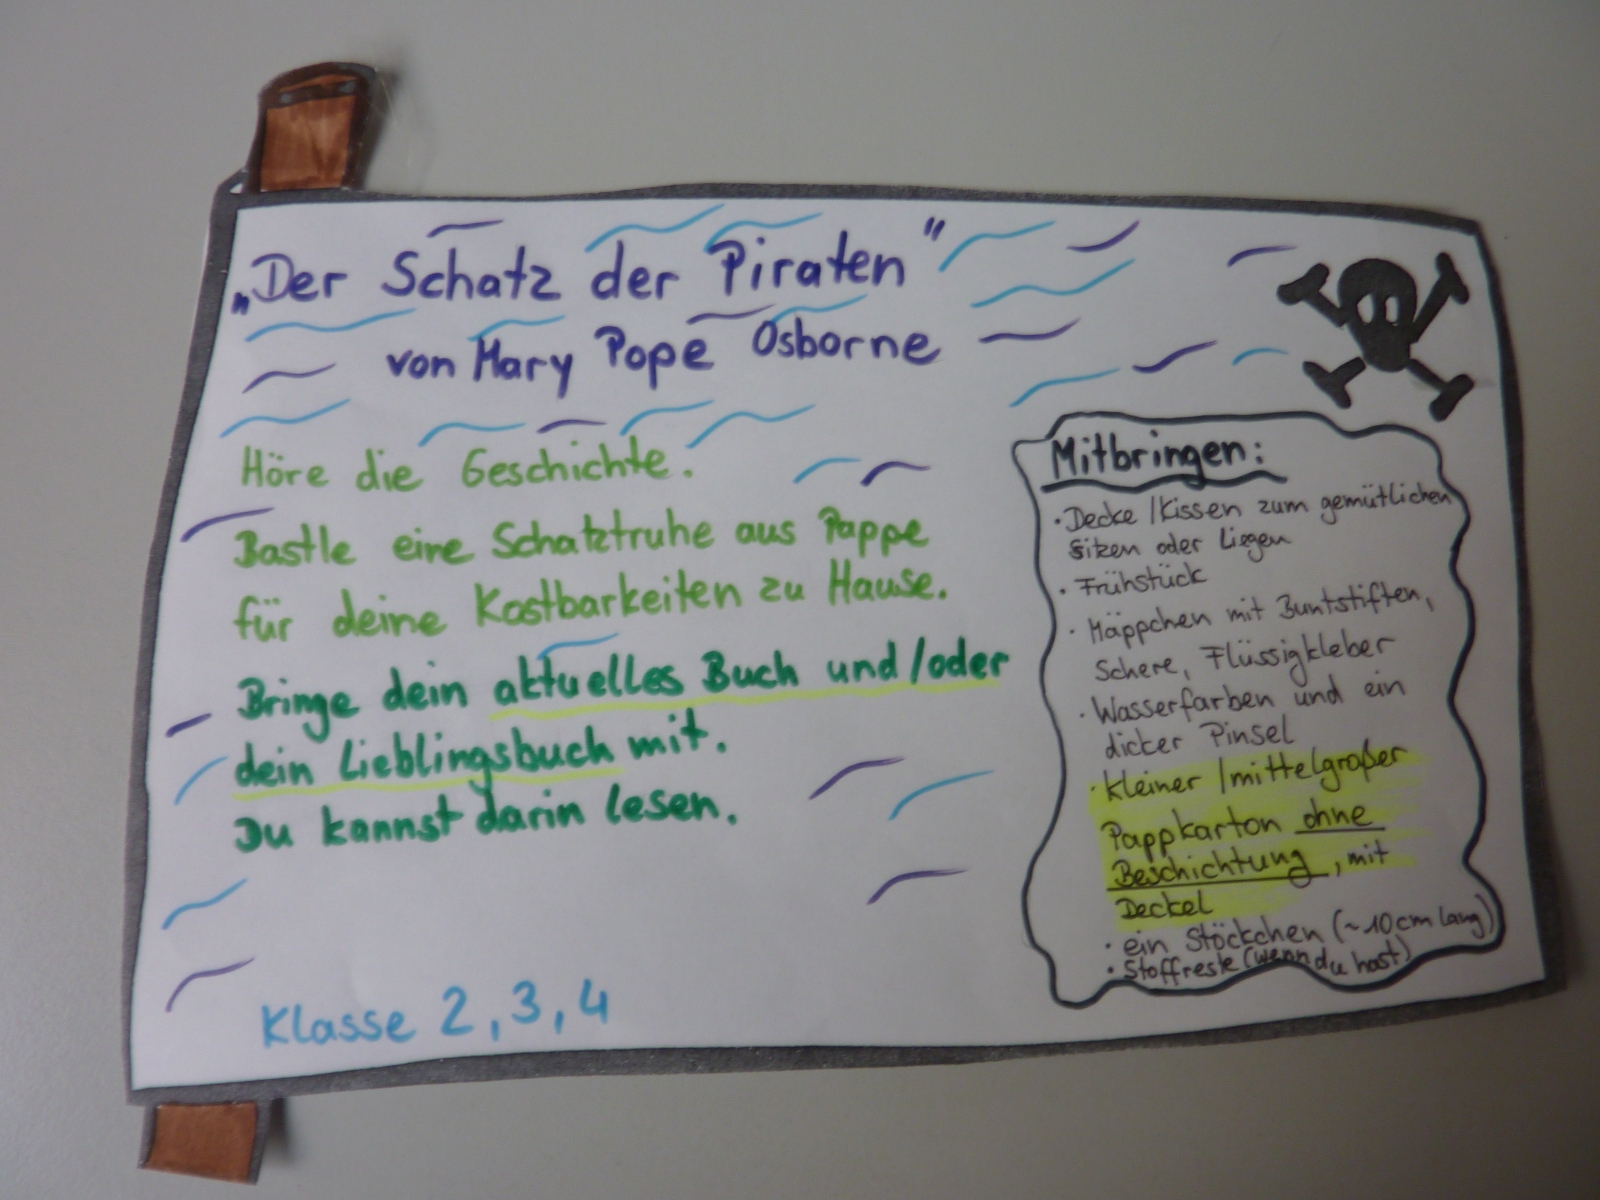 „Der Schatz der Piraten"
von Mary Pope Osborne
Höre die Geschichte.
Bastle eine Schatztruhe aus Pappe
für deine Kostbarkeiten zu Hause.
Bringe dein aktuelles Buch und/oder
dein Lieblingsbuch mit.
Du kannst darin lesen.
Klasse 2, 3, 4
Mitbringen:
· Decke/Kissen zum gemütlichen
sitzen oder Liegen
· Frühstück
· Mäppchen mit Buntstiften,
Schere, Flüssigkleber
· Wasserfarben und ein
dicker Pinsel
· kleiner/mittelgroßer
Pappkarton ohne
Beschichtung, mit
Deckel
· ein Stöckchen (~10cm lang)
· Stoffreste (wenn du hast)